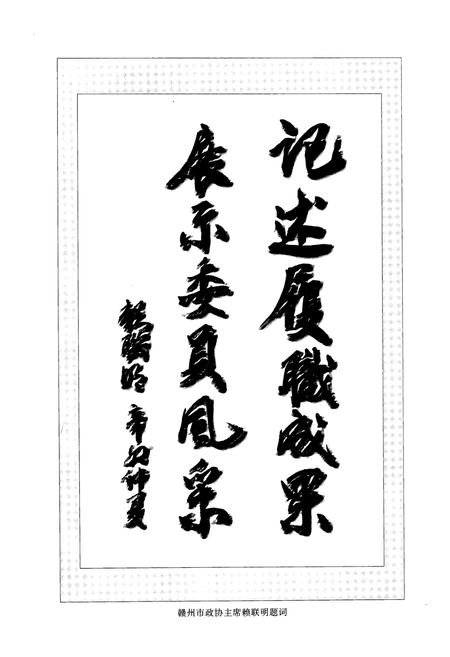 记述履職成果
展示委員風采
赖联明 仲夏
赣州市政协主席赖联明题词